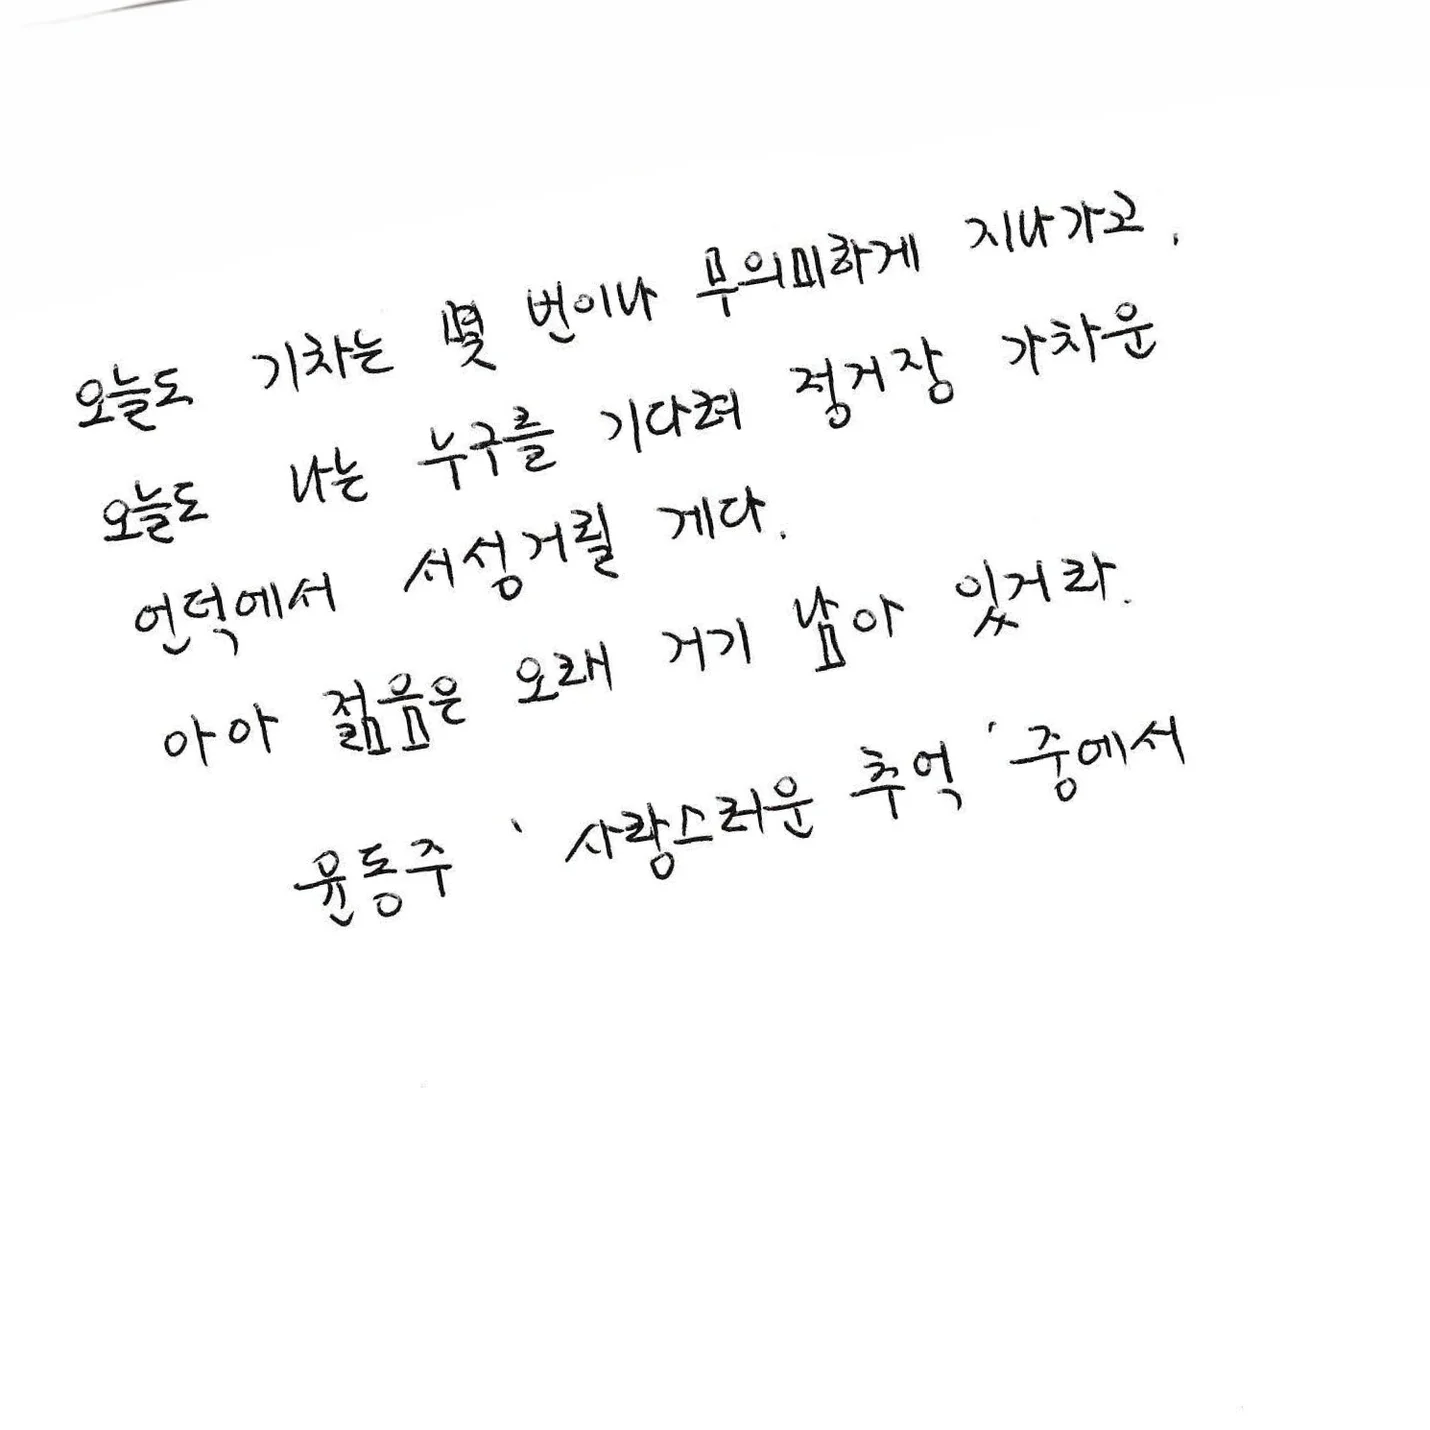 오늘도 기차는 몇 번이나 무의미하게 지나가고,
오늘도 나는 누구를 기다려 정거장 가차운
언덕에서 서성거릴 게다.
아아 젊음은 오래 거기 남아 있거라.
윤동주 '사랑스러운 추억' 중에서